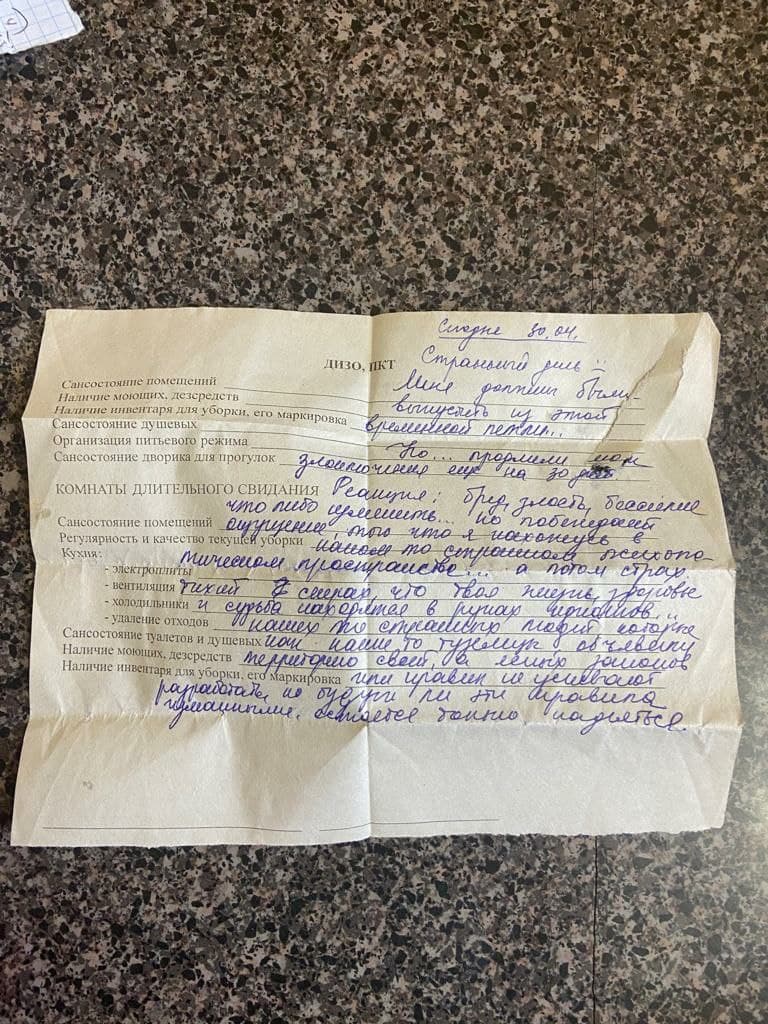 Сегодня 30.04.
ДИЗО, ПКТ Странный день
Сансостояние помещений Мне должны были
Наличие моющих, дезсредств выпустить из этой
Наличие инвентаря для уборки, его маркировка временной петли...
Сансостояние душевых
Организация питьевого режима Но... продлили нам
Сансостояние дворика для прогулок заключение еще на 30 дней.
КОМНАТЫ ДЛИТЕЛЬНОГО СВИДАНИЯ Реакция: бред, злость, бессилие
что либо изменить... но побеждает
Сансостояние помещений ощущение того что я нахожусь в
Регулярность и качество текущей уборки каком то страшном
Кухня: пространстве... а потом страх.
- электроплиты
- вентиляция тихий страх, что твоя жизнь, здоровье
- холодильники и судьба находятся в руках
- удаление отходов каких то страшных людей которые
Сансостояние туалетов и душевых как какие то объявили
Наличие моющих, дезсредств территорию своей, а законов
Наличие инвентаря для уборки, его маркировка или правил не успевают
разработать, но будут ли эти правила
гуманными, остается только надеяться.